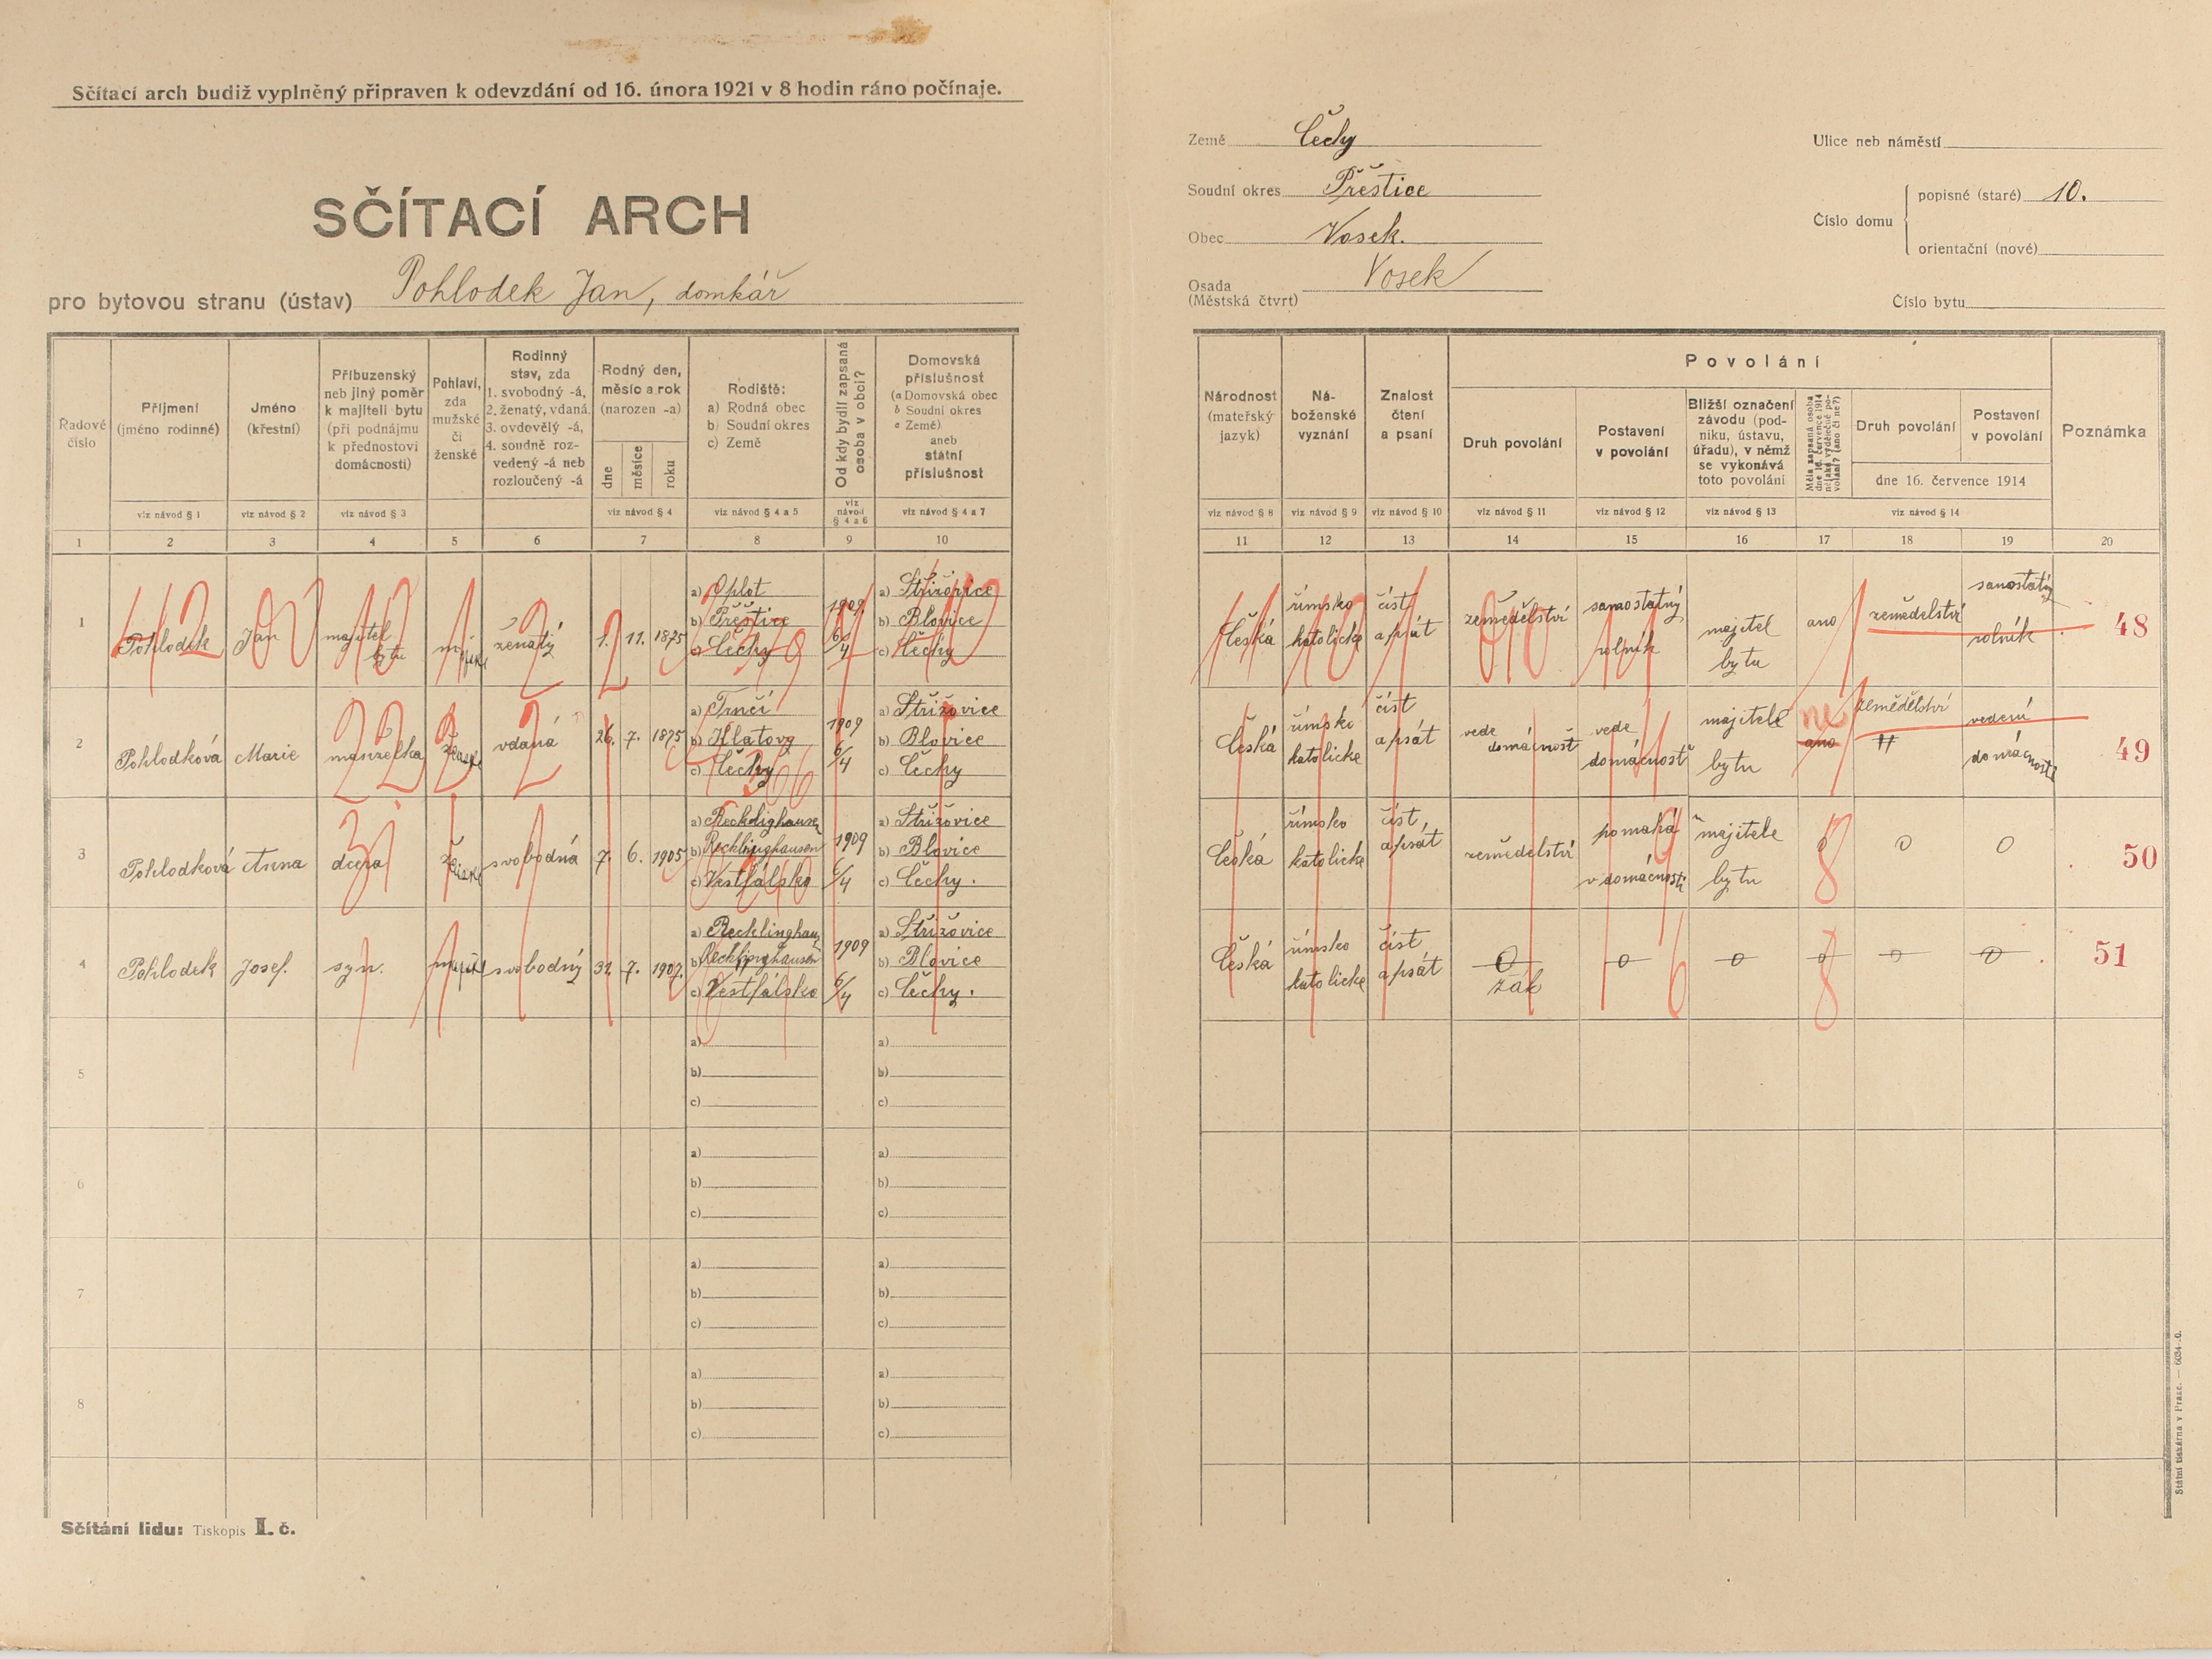 Sčítací arch budiž vyplněný připraven k odevzdání od 16. února 1921 v 8 hodin ráno počínaje.
SČÍTACÍ ARCH
pro bytovou stranu (ústav) Pohlodek Jan, domkář
Země Čechy
Soudní okres Přeštice
Obec Vosek.
Osada Vosek
(Městská čtvrt)
Ulice neb náměstí
Číslo domu
popisné (staré) 10.
orientační (nové)
Číslo bytu
Řadové číslo
Příjmení (jméno rodinné)
Jméno (křestní)
Příbuzenský neb jiný poměr k majiteli bytu (při podnájmu k přednostovi domácnosti)
Pohlaví, zda mužské či ženské
Rodinný stav, zda 1. svobodný -á, 2. ženatý, vdaná, 3. ovdovělý -á, 4. soudně rozvedený -á neb rozloučený -á
Rodný den, měsíc a rok (narozen -a)
dne měsíce roku
Rodiště: a) Rodná obec b) Soudní okres c) Země
Od kdy bydlí zapsaná osoba v obci?
Domovská příslušnost (a Domovská obec b Soudní okres c Země) aneb státní příslušnost
viz návod § 1
viz návod § 2
viz návod § 3
viz návod § 4
viz návod § 4 a 5
viz návod § 4 a 6
viz návod § 4 a 7
1 2 3 4 5 6 7 8 9 10
Národnost (mateřský jazyk)
Náboženské vyznání
Znalost čtení a psaní
Povolání
Druh povolání
Postavení v povolání
Bližší označení závodu (podniku, ústavu, úřadu), v němž se vykonává toto povolání
Měla zapsaná osoba dne 16. července 1914 nějaké výdělečné povolání? (ano či ne?)
Druh povolání
Postavení v povolání
dne 16. července 1914
Poznámka
viz návod § 8
viz návod § 9
viz návod § 10
viz návod § 11
viz návod § 12
viz návod § 13
viz návod § 14
11 12 13 14 15 16 17 18 19 20
1 Pohlodek Jan majitel bytu mužské ženatý 1. 11. 1875
a) Oplot
b) Přeštice
c) Čechy
1909 6/4
a) Střížovice
b) Blovice
c) Čechy
Česká římsko katolické číst a psát zemědělství samostatný rolník majitel bytu ano zemědelství samostatný rolník 48
2 Pohlodková Marie manželka ženské vdaná 26. 7. 1875
a) Trnčí
b) Klatovy
c) Čechy
1909 6/4
a) Střížovice
b) Blovice
c) Čechy
Česká římsko katolické číst a psát vede domácnost vede domácnost majitele bytu ano ne zemědělství vedení domácnosti 49
3 Pohlodková Anna dcera ženské svobodná 7. 6. 1905
a) Recklighausen
b) Recklinghausen
c) Vestfálsko
1909 6/4
a) Střížovice
b) Blovice
c) Čechy.
Česká římsko katolické číst a psát zemědelství pomahá v domácnosti majitele bytu 0 0 0 50
4 Pohlodek Josef. syn. mužské svobodný 31. 7. 1907.
a) Recklinghau
b) Recklinghausen
c) Vestfálsko
1909 6/4
a) Střížovice
b) Blovice
c) Čechy.
Česká římsko katolické číst a psát 0 žák 0 0 0 0 0 51
5
a)
b)
c)
a)
b)
c)
6
a)
b)
c)
a)
b)
c)
7
a)
b)
c)
a)
b)
c)
8
a)
b)
c)
a)
b)
c)
Sčítání lidu: Tiskopis I. č.
Státní tiskárna v Praze. — 6034-.0.